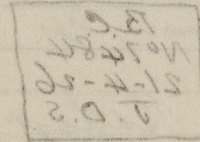 B.C.
No 7484
21-4-26
J.D.S